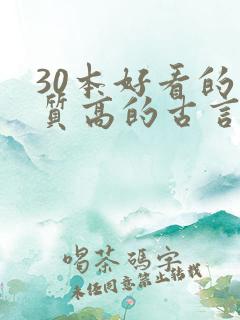 30本好看的
质高的古言
喝茶码字
未经同意禁止转载